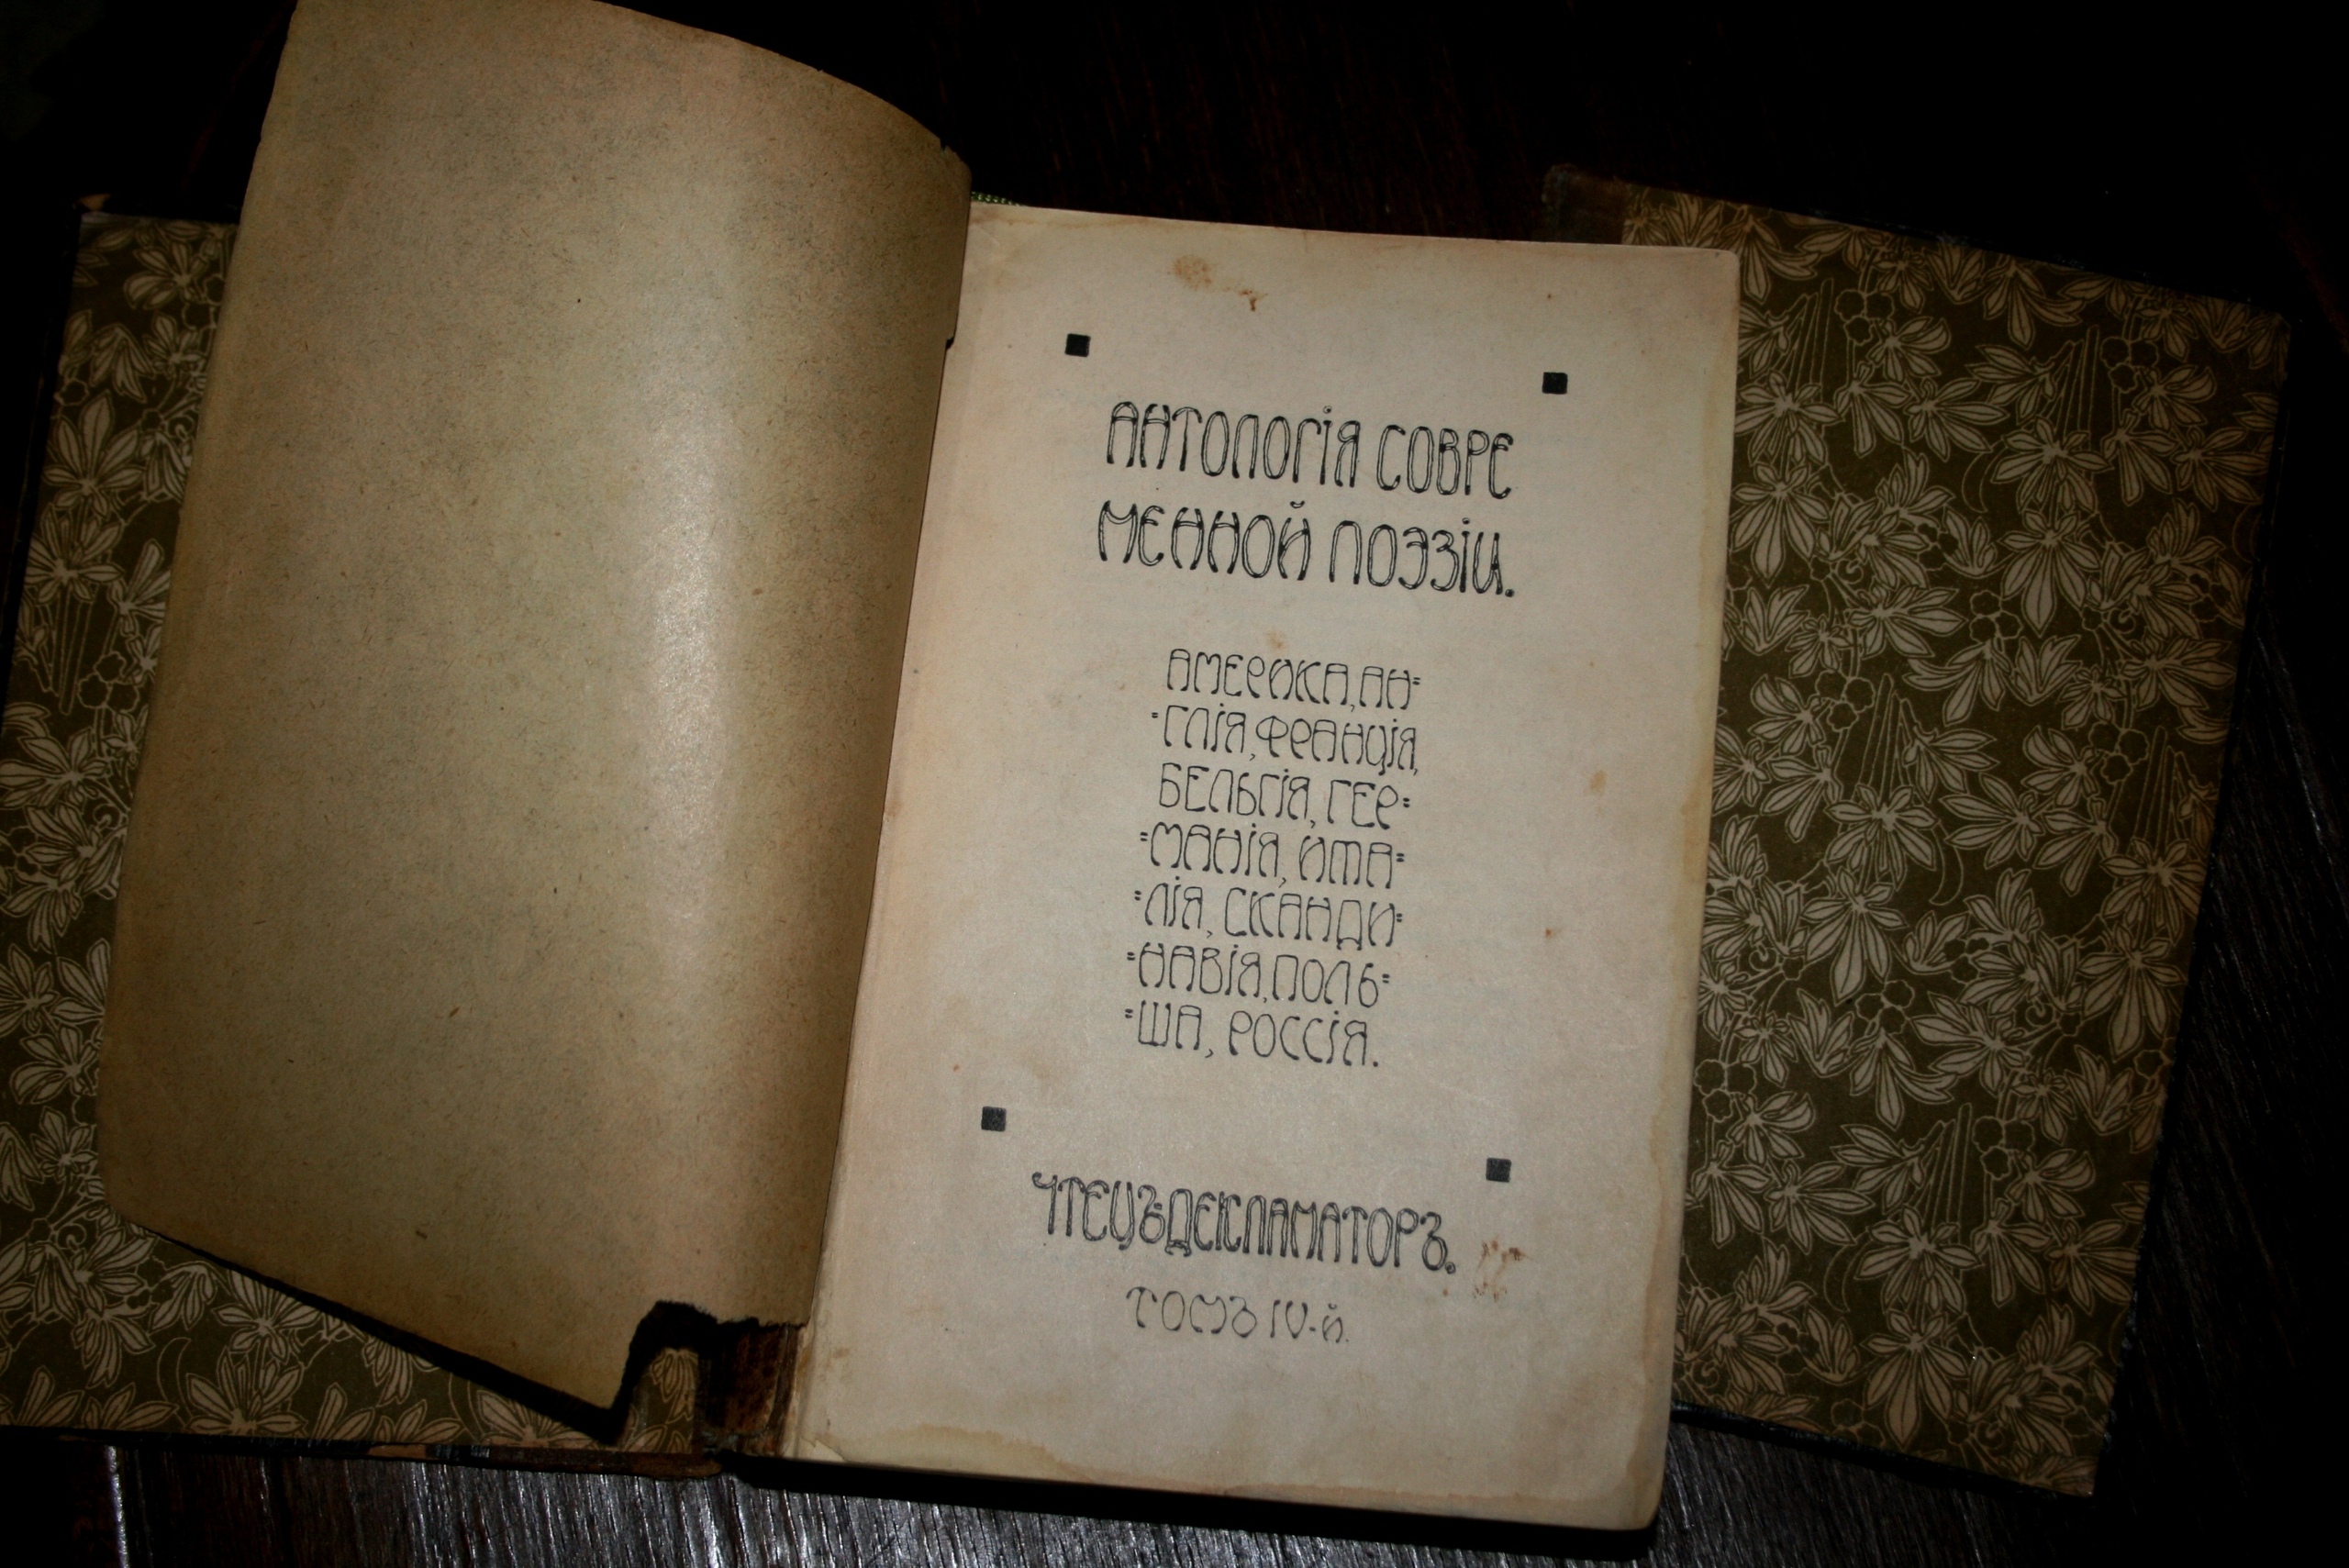 АНТОЛОГІЯ СОВРЕ
МЕННОЙ ПОЭЗІИ.
АМЕРИКА, АН=
=ГЛІЯ, ФРАНЦІЯ,
БЕЛЬГІЯ, ГЕР=
=МАНІЯ, ИТА=
=ЛІЯ, СКАНДИ=
=НАВІЯ, ПОЛЬ=
=ША, РОССІЯ.
ЧТЕЦЪ-ДЕКЛАМАТОРЪ.
ТОМЪ IV-Й.